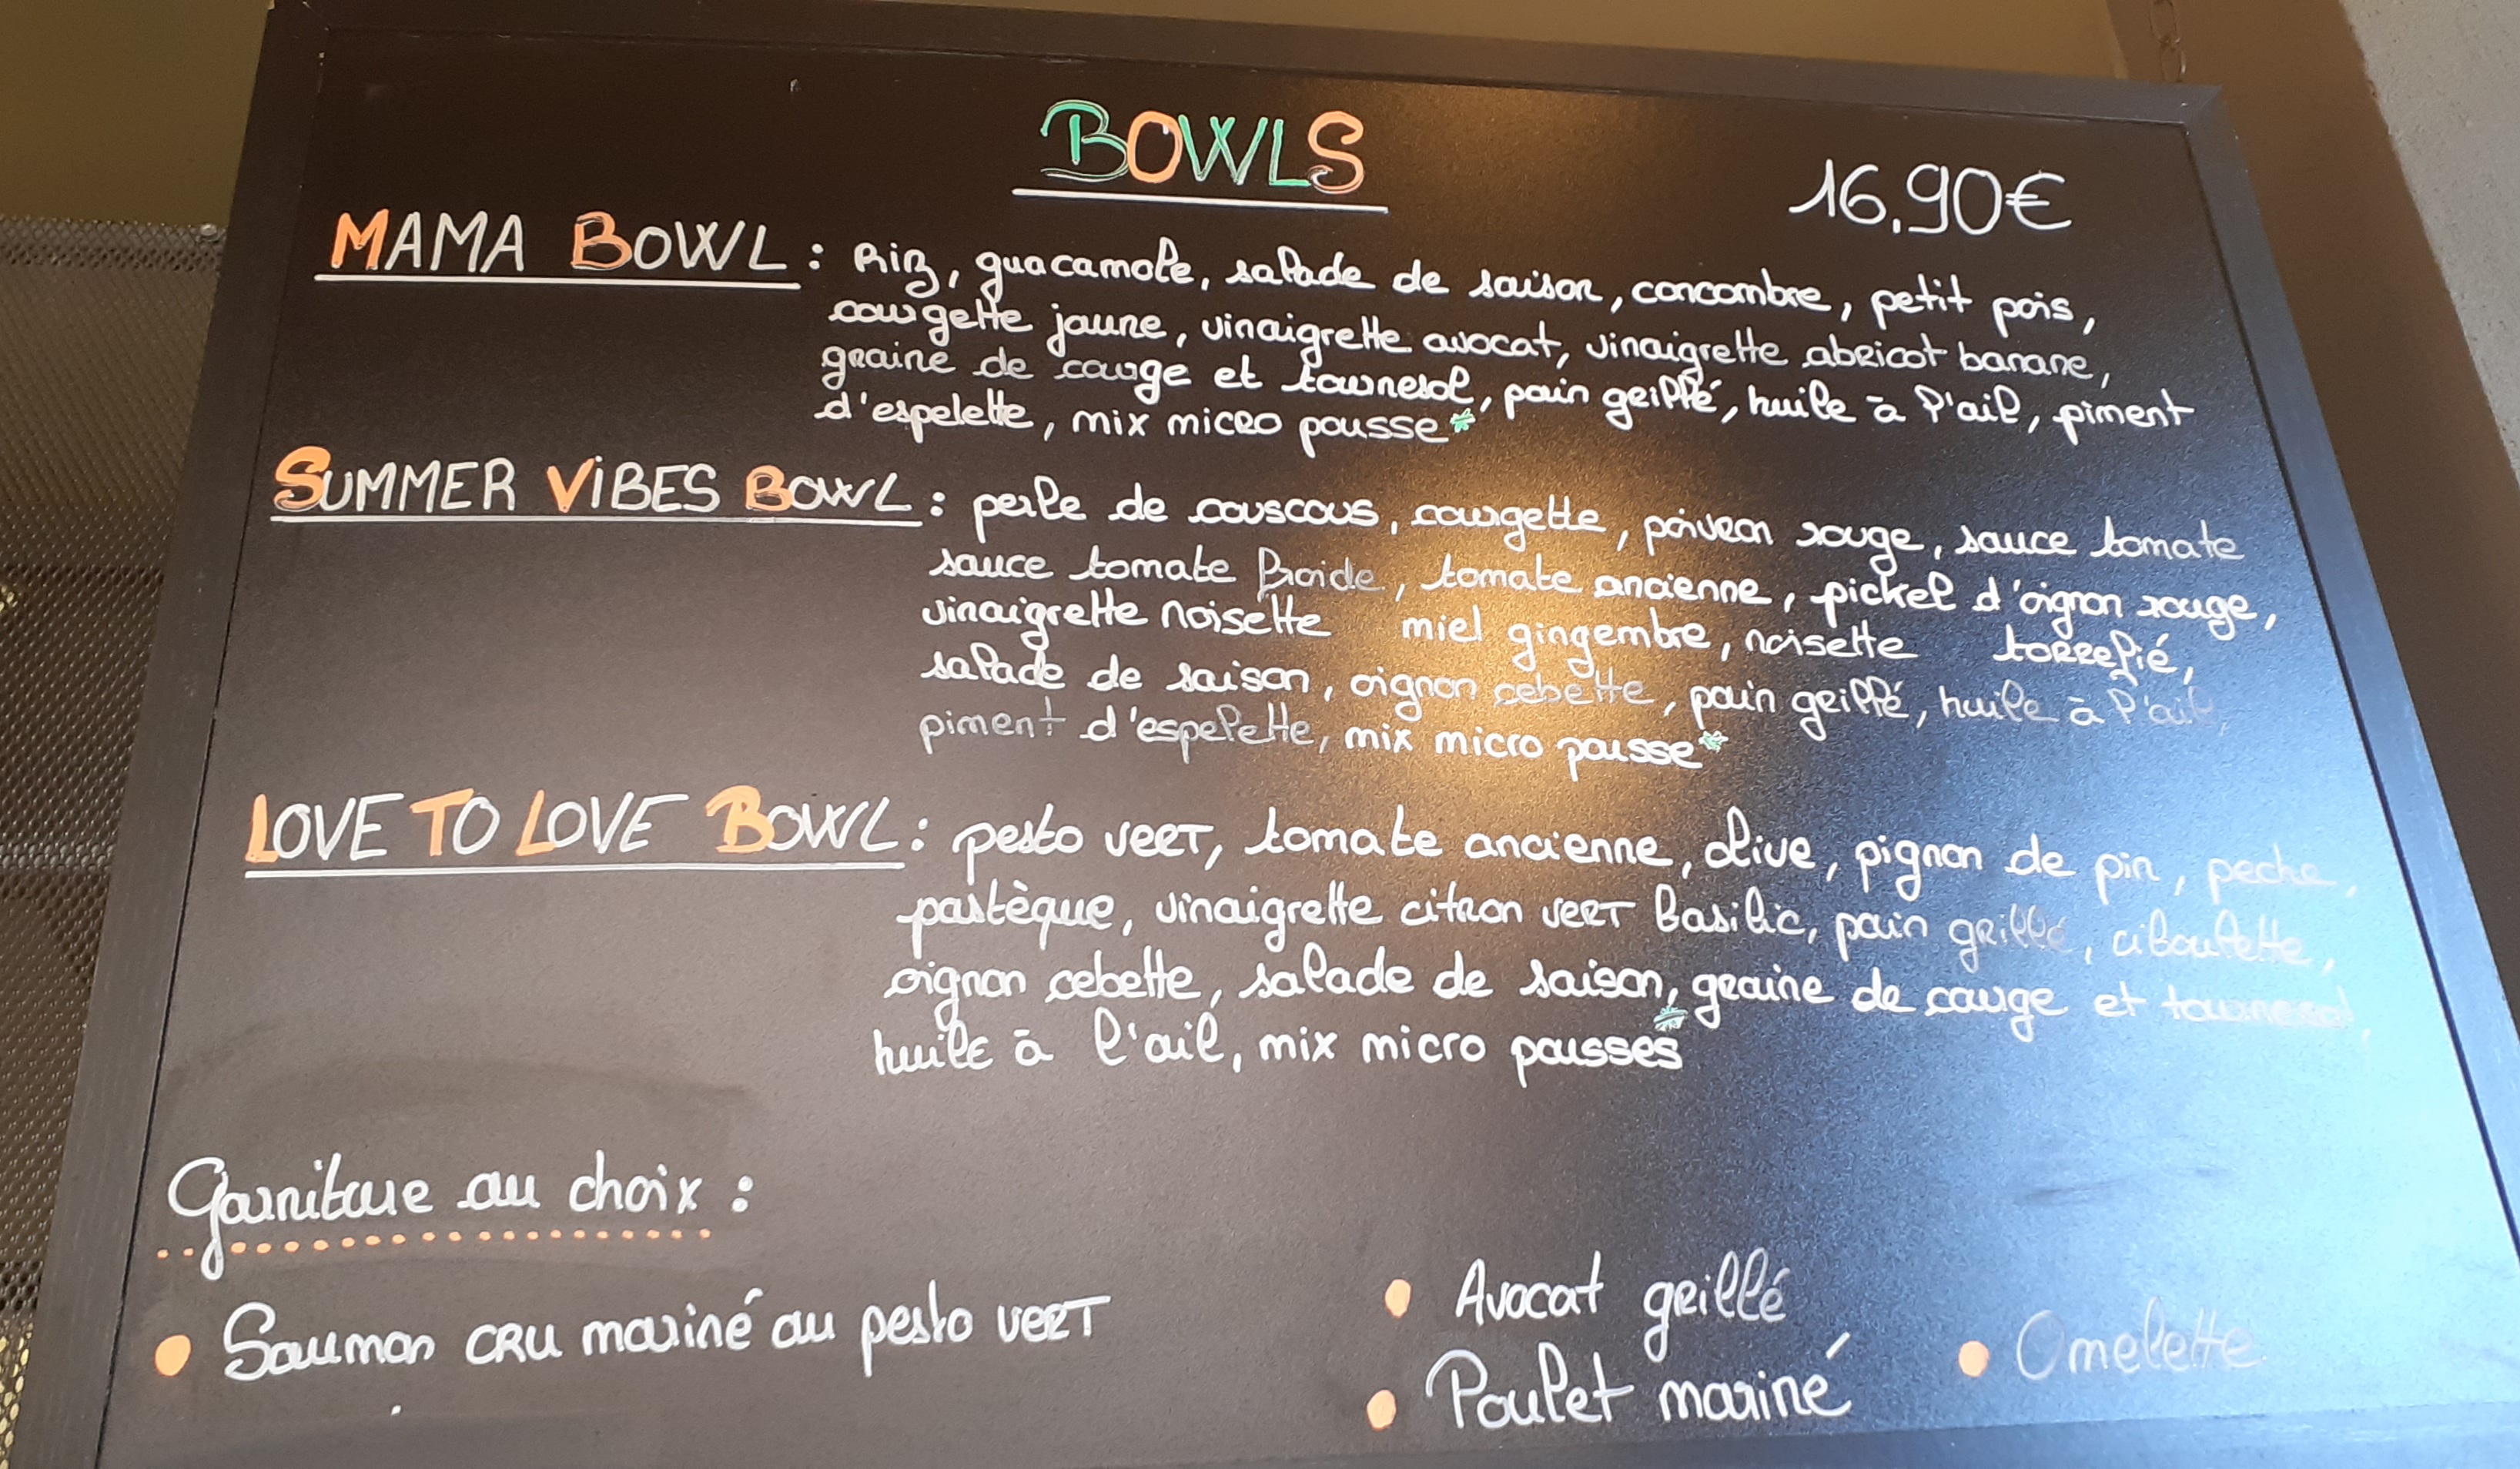 BOWLS
16,90€
MAMA BOWL : Riz, guacamole, salade de saison, concombre, petit pois,
courgette jaune, vinaigrette avocat, vinaigrette abricot banane,
graine de courge et tournesol, pain grillé, huile à l'ail, piment
d'espelette, mix micro pousse*
SUMMER VIBES BOWL : perle de couscous, courgette, poivron rouge, sauce tomate
sauce tomate froide, tomate ancienne, pickel d'oignon rouge,
vinaigrette noisette miel gingembre, noisette torrefié,
salade de saison, oignon cebette, pain grillé, huile à l'ail,
piment d'espelette, mix micro pousse*
LOVE TO LOVE BOWL : pesto vert, tomate ancienne, olive, pignon de pin, peche,
pastèque, vinaigrette citron vert basilic, pain grillé, ciboulette,
oignon cebette, salade de saison, graine de courge et tournesol,
huile à l'ail, mix micro pousses*
Garniture au choix :
• Saumon cru mariné au pesto vert
• Avocat grillé
• Poulet mariné
• Omelette